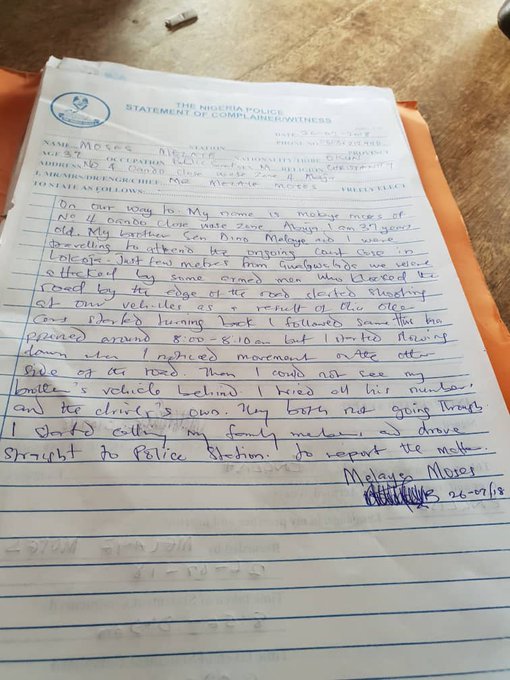 THE NIGERIA POLICE
STATEMENT OF COMPLAINER/WITNESS
STATION
DATE 26-07-2018
NAME MOSES MELAYE PHONE NO PROVINCE
AGE 37 OCCUPATION NATIONALITY/TRIBE OKUN
ADDRESS No 4 Oando close wuse zone RELIGION CHRISTIANITY
I, MR/MRS/DR/ENGR/CHIEF: MR MELAYE MOSES FREELY ELECT
TO STATE AS FOLLOWS:
On our way to. My name is melaye moses of
No 4 oando close wuse zone Abuja. I am 37 years
old. My brother Sen Dino Melaye and I were
travelling to attend the ongoing court case in
Lokoja. Just few metres from Gwagwalada we were
attacked by some armed men who blocked the
road by the edge of the road started shooting
at our vehicles as a result of this other
Cars started turning back I followed same. This ha
ppened around 8:00-8:10am but I started slowing
down when I noticed movement on the other
side of the road. Then I could not see my
brother's vehicle behind. I tried all his numbers
and the driver's own. They both not going through
I started calling my family members and drove
straight to Police Station. to report the matter.
Melaye Moses
26-07/18